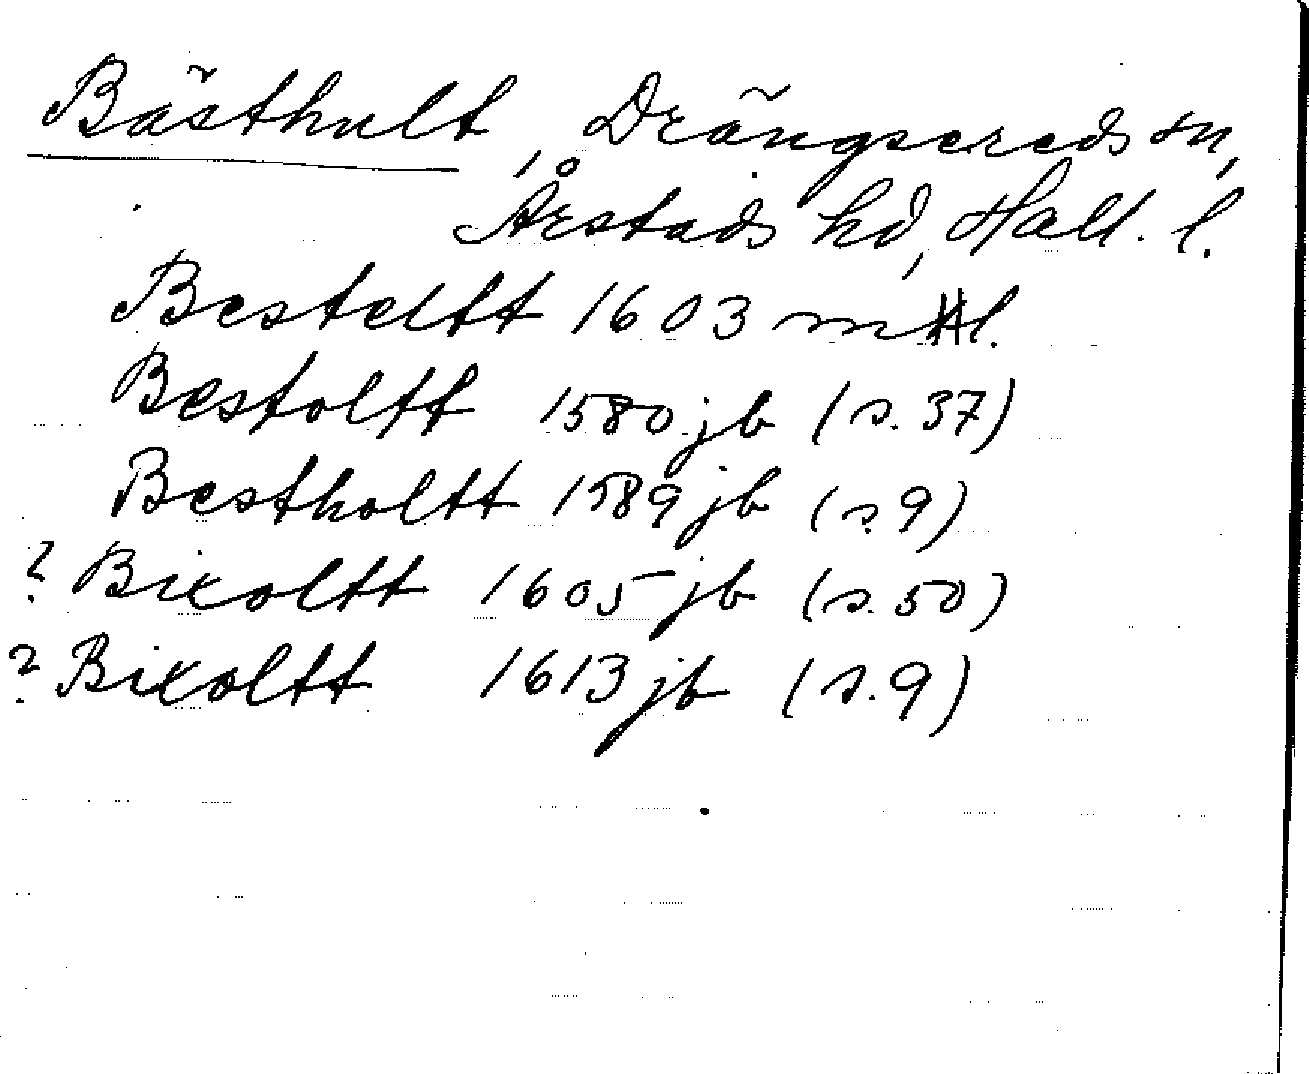 Bästhult, Drängsereds sn,
Årstads hd, Hall. l.
Besteltt 1603 mtl.
Bestoltt 1580 jb (s. 37)
Bestholtt 1589 jb (s. 9)
? Bixoltt 1605 jb (s. 50)
? Bixoltt 1613 jb (s. 9)